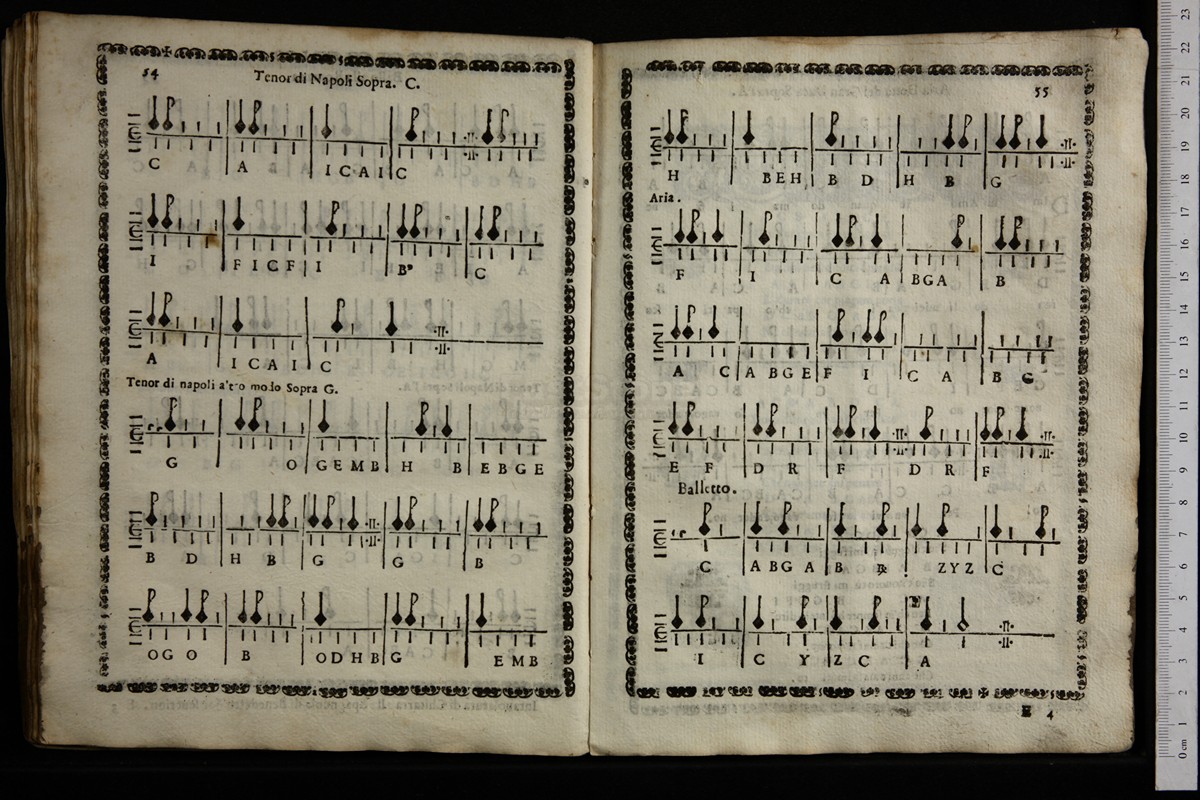 54
Tenor di Napoli Sopra. C.
C A I C A I C A
I F I C F I B E C
A I C A I C
Tenor di napoli a'tro modo Sopra G.
G O G E M B H B E B G E
B D H B G G B
O G O B O D H B G E M B
55
H B E H B D H B G
Aria.
F I C A B G A B
A C A B G E F I C A B G
E F D R F D R F
Balletto.
C A B G A B Z Y Z C
I C Y Z C A
4
23
22
21
20
19
18
17
16
15
14
13
12
11
10
9
8
7
6
5
4
3
2
1
0 cm